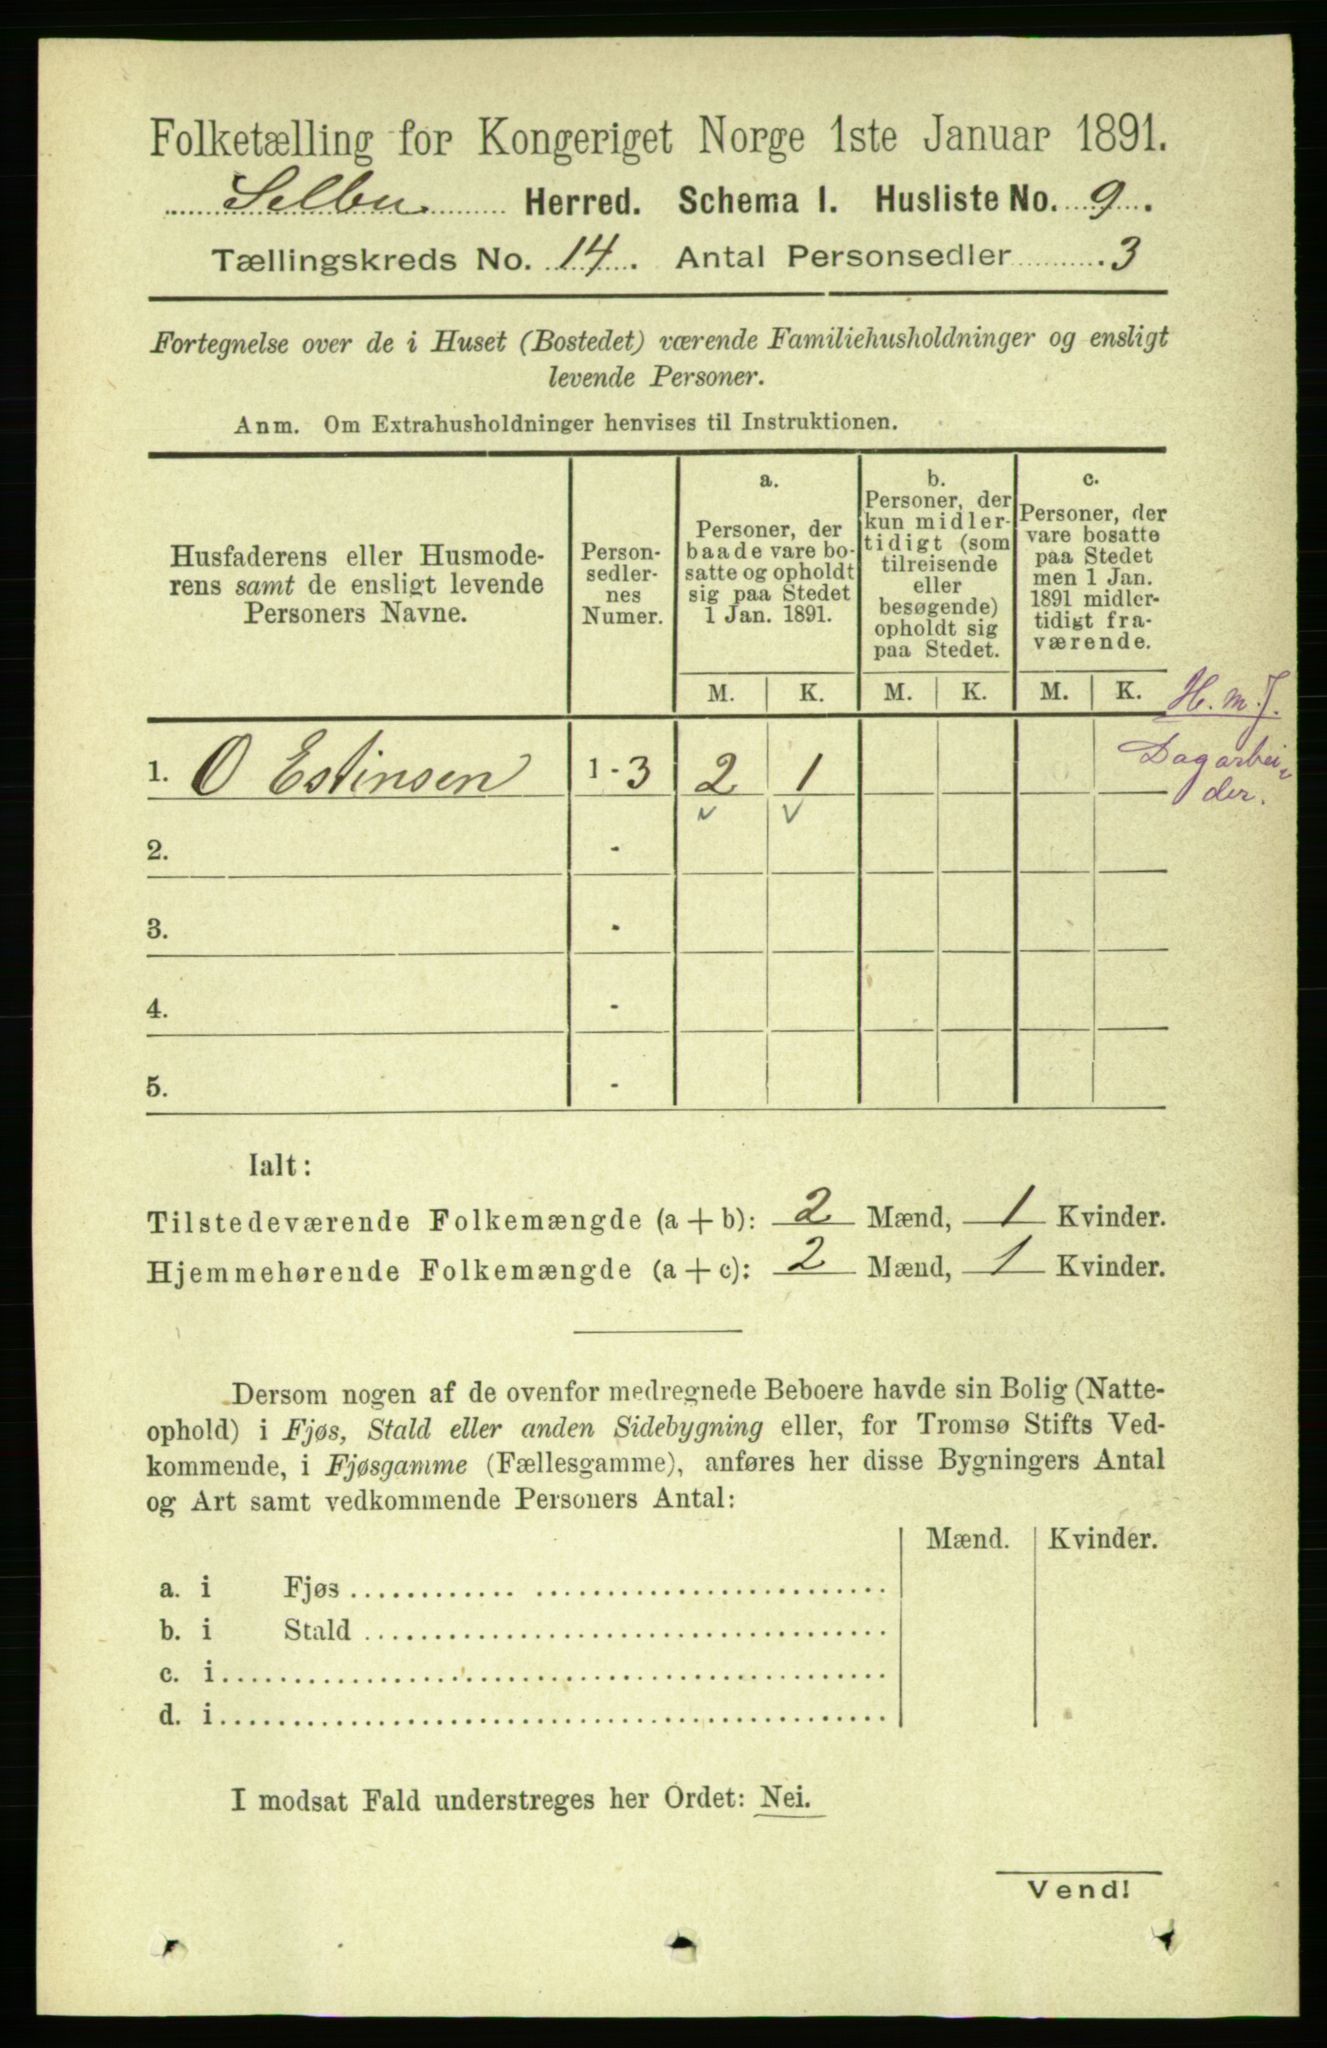 Folketælling for Kongeriget Norge 1ste Januar 1891.
Selbu Herred. Schema I. Husliste No. 9.
Tællingskreds No. 14. Antal Personsedler 3
Fortegnelse over de i Huset (Bostedet) værende Familiehusholdninger og ensligt
levende Personer.
Anm. Om Extrahusholdninger henvises til Instruktionen.
Husfaderens eller Husmode-
rens samt de ensligt levende
Personers Navne.
Person-
sedler-
nes
Numer.
a.
Personer, der
baade vare bo-
satte og opholdt
sig paa Stedet
1 Jan. 1891.
b.
Personer, der
kun midler-
tidigt (som
tilreisende
eller
besøgende)
opholdt sig
paa Stedet.
c.
Personer, der
vare bosatte
paa Stedet
men 1 Jan.
1891 midler-
tidigt fra-
værende.
M. K. M. K. M. K.
H. m. J.
Dagarbei-
der.
1. O Estinsen 1-3 2 1
2. -
3. -
4. -
5. -
Ialt:
Tilstedeværende Folkemængde (a + b): 2 Mænd, 1 Kvinder.
Hjemmehørende Folkemængde (a + c): 2 Mænd, 1 Kvinder.
Dersom nogen af de ovenfor medregnede Beboere havde sin Bolig (Natte-
ophold) i Fjøs, Stald eller anden Sidebygning eller, for Tromsø Stifts Ved-
kommende, i Fjøsgamme (Fællesgamme), anføres her disse Bygningers Antal
og Art samt vedkommende Personers Antal:
Mænd. Kvinder.
a. i Fjøs
b. i Stald
c. i
d. i
I modsat Fald understreges her Ordet: Nei.
Vend!